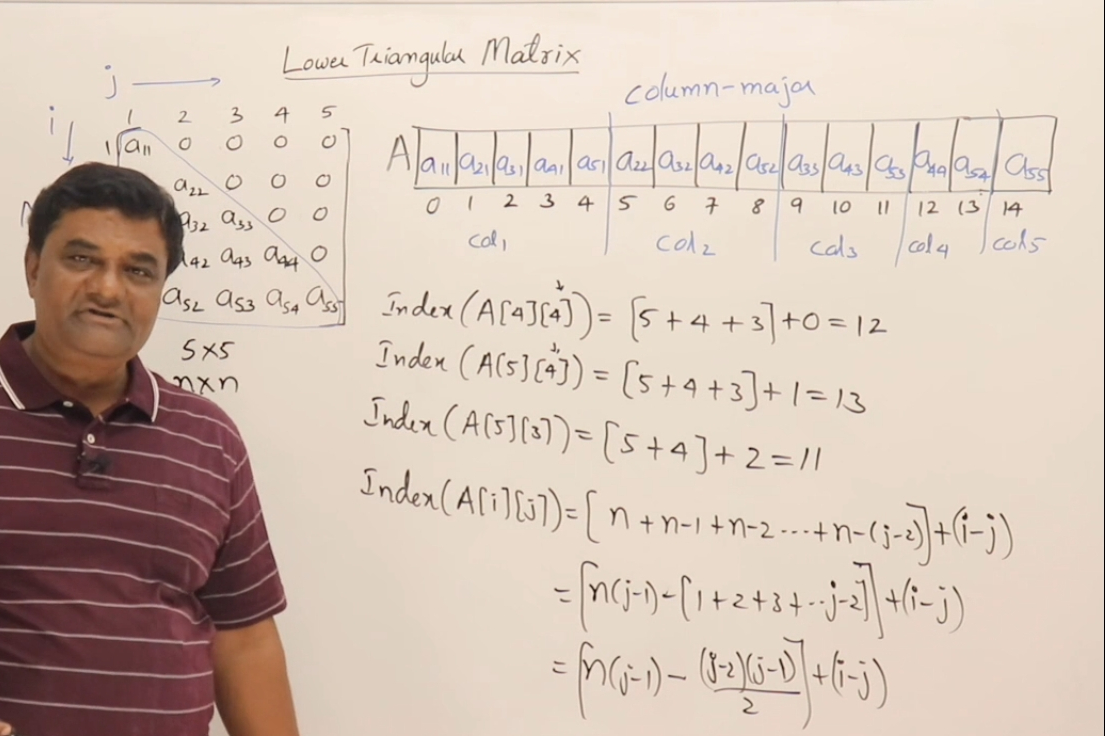 Lower Triangular Matrix
j →
column-major
i ↓
1 2 3 4 5
1 a11 0 0 0 0
a22 0 0 0
a32 a33 0 0
a42 a43 a44 0
a52 a53 a54 a55
5×5
n×n
A a11 a21 a31 a41 a51 a22 a32 a42 a52 a33 a43 a53 a44 a54 a55
0 1 2 3 4 5 6 7 8 9 10 11 12 13 14
col1 col2 col3 col4 col5
Index(A[4][4]) = [5+4+3]+0 = 12
Index(A[5][4]) = [5+4+3]+1 = 13
Index(A[5][3]) = [5+4]+2 = 11
Index(A[i][j]) = [n+n-1+n-2---+n-(j-2)]+(i-j)
= [n(j-1)-[1+2+3+--j-2]]+(i-j)
= [n(j-1) - (j-2)(j-1)/2]+(i-j)